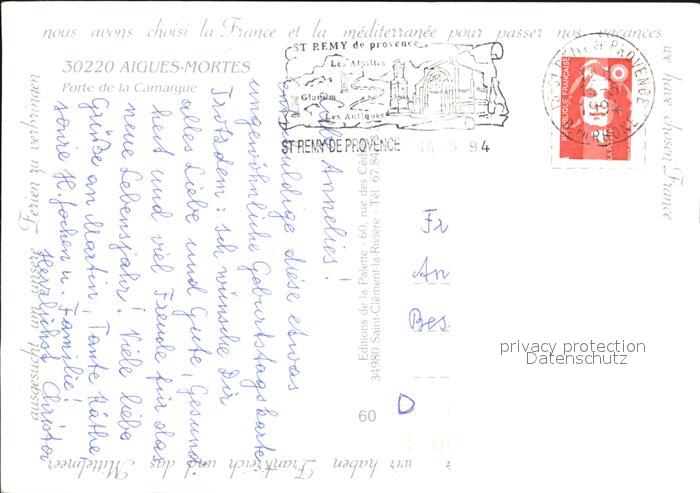 nous avons choisi la France et la méditerranée pour passer nos vacances
we have chosen France
wir haben Frankreich und das Mittelmeer
ausgesucht um unsere Ferien zu verbringen
30220 AIGUES-MORTES
Porte de la Camargue
ST REMY de provence
Les Alpilles
Glanum
Les Antiques
ST REMY DE PROVENCE 14-5 94
REPUBLIQUE FRANÇAISE
LA POSTE
Editions de la Palette - 60, rue des Cèd
34980 Saint-Clément-la-Rivière - Tél 67.84
60
Liebe Annelies!
Entschuldige diese etwas
ungewöhnliche Geburtstagskarte.
Trotzdem: Ich wünsche Dir
alles Liebe und Gute, Gesund-
heit und viel Freude für das
neue Lebensjahr! Viele liebe
Grüße an Martin, Tante Käthe,
sowie H. Jochen u. Familie!
Herzlichst Christa
Fr
An
Bes
D
privacy protection
Datenschutz